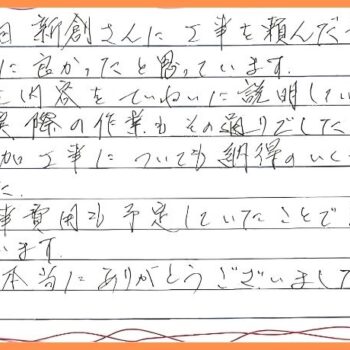 回 新創さんに工事を頼んだ
に良かったと思っています.
内容をていねいに説明してい
実際の作業もその通りでした
加工事についても納得のいく
た.
事費用も予定していたことで
います.
本当にありがとうございまして